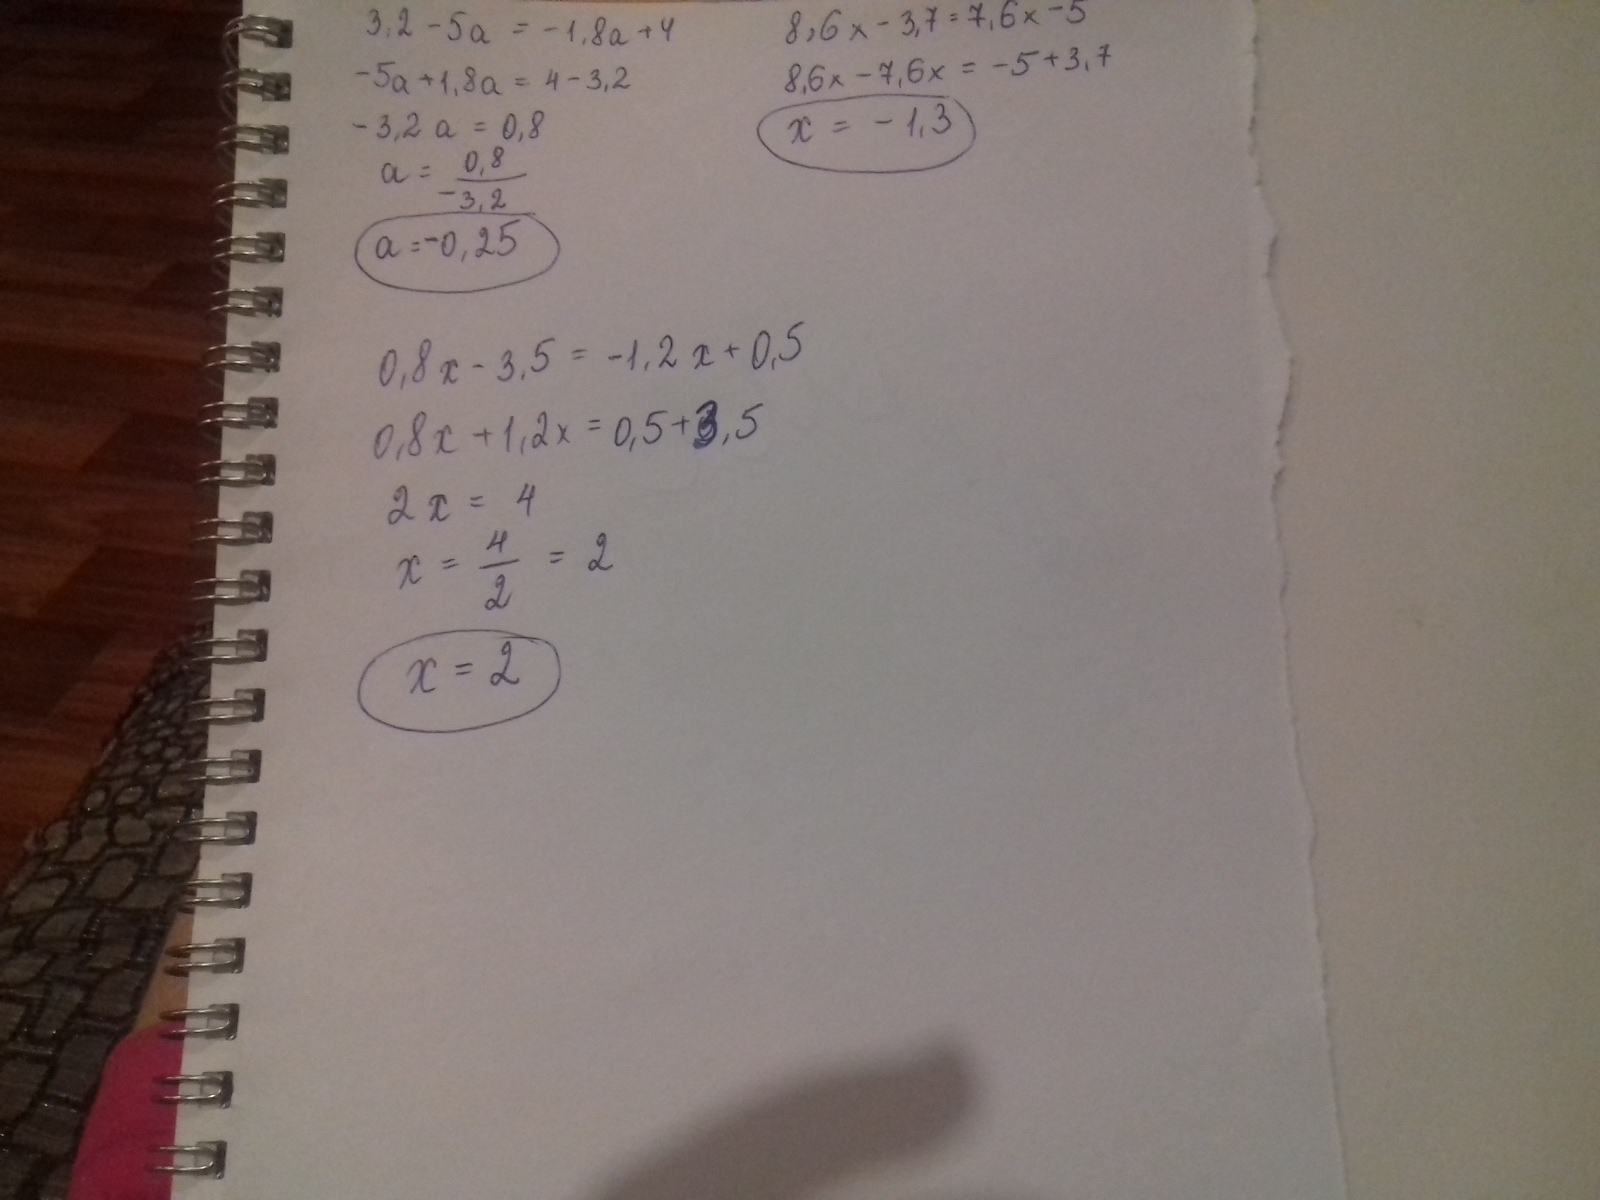 3,2 - 5a = -1,8a + 4
-5a + 1,8a = 4 - 3,2
-3,2 a = 0,8
a = 0,8 / -3,2
a = -0,25
8,6x - 3,7 = 7,6x - 5
8,6x - 7,6x = -5 + 3,7
x = -1,3
0,8x - 3,5 = -1,2x + 0,5
0,8x + 1,2x = 0,5 + 3,5
2x = 4
x = 4 / 2 = 2
x = 2